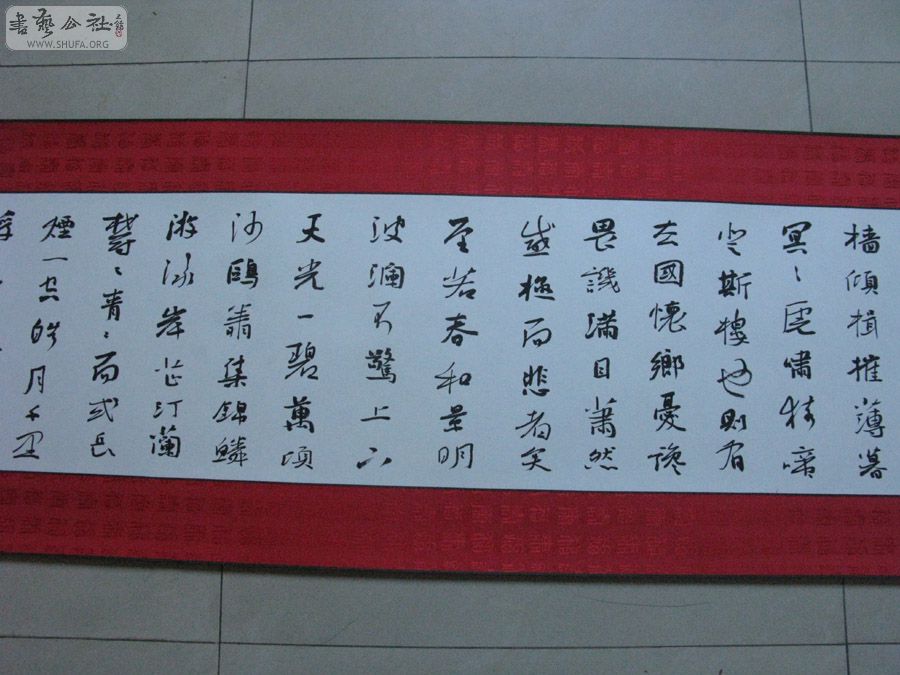 書藝公社
WWW.SHUFA.ORG
檣傾楫摧薄暮
冥〻虎嘯猿啼
登斯樓也則有
去國懷鄉憂讒
畏譏滿目蕭然
感極而悲者矣
至若春和景明
波瀾不驚上下
天光一碧萬頃
沙鷗翔集錦鱗
游泳岸芷汀蘭
鬱〻青〻而或長
煙一空皓月千里
浮